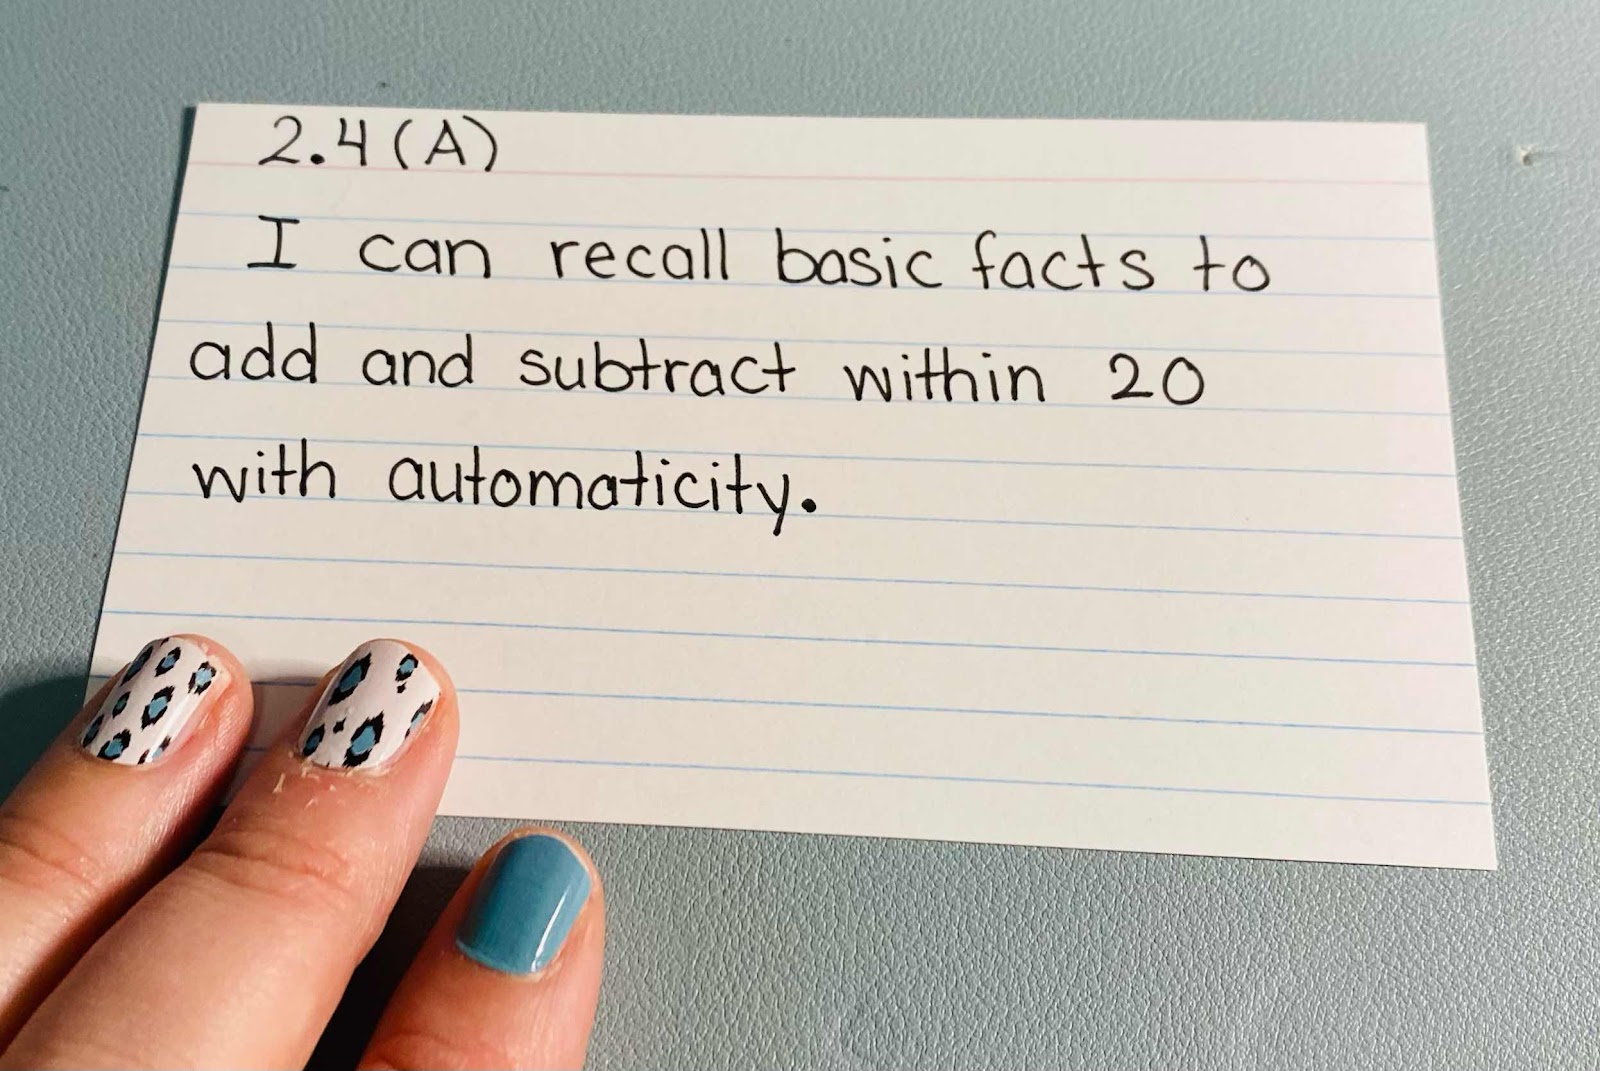 2.4(A)
I can recall basic facts to
add and subtract within 20
with automaticity.